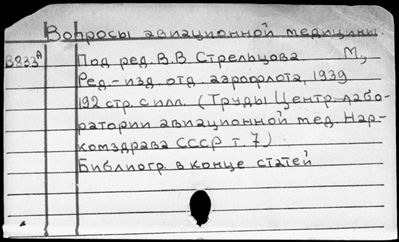 Вопросы авиационной медицины.
В833А Под ред. В.В Стрельцова М.,
Ред.-изд отд. аэрофлота, 1939
192 стр. с илл. (Труды Центр. лабо-
ратории авиационной мед. Нар-
комздрава СССР т. 7)
Библиогр. в конце статей